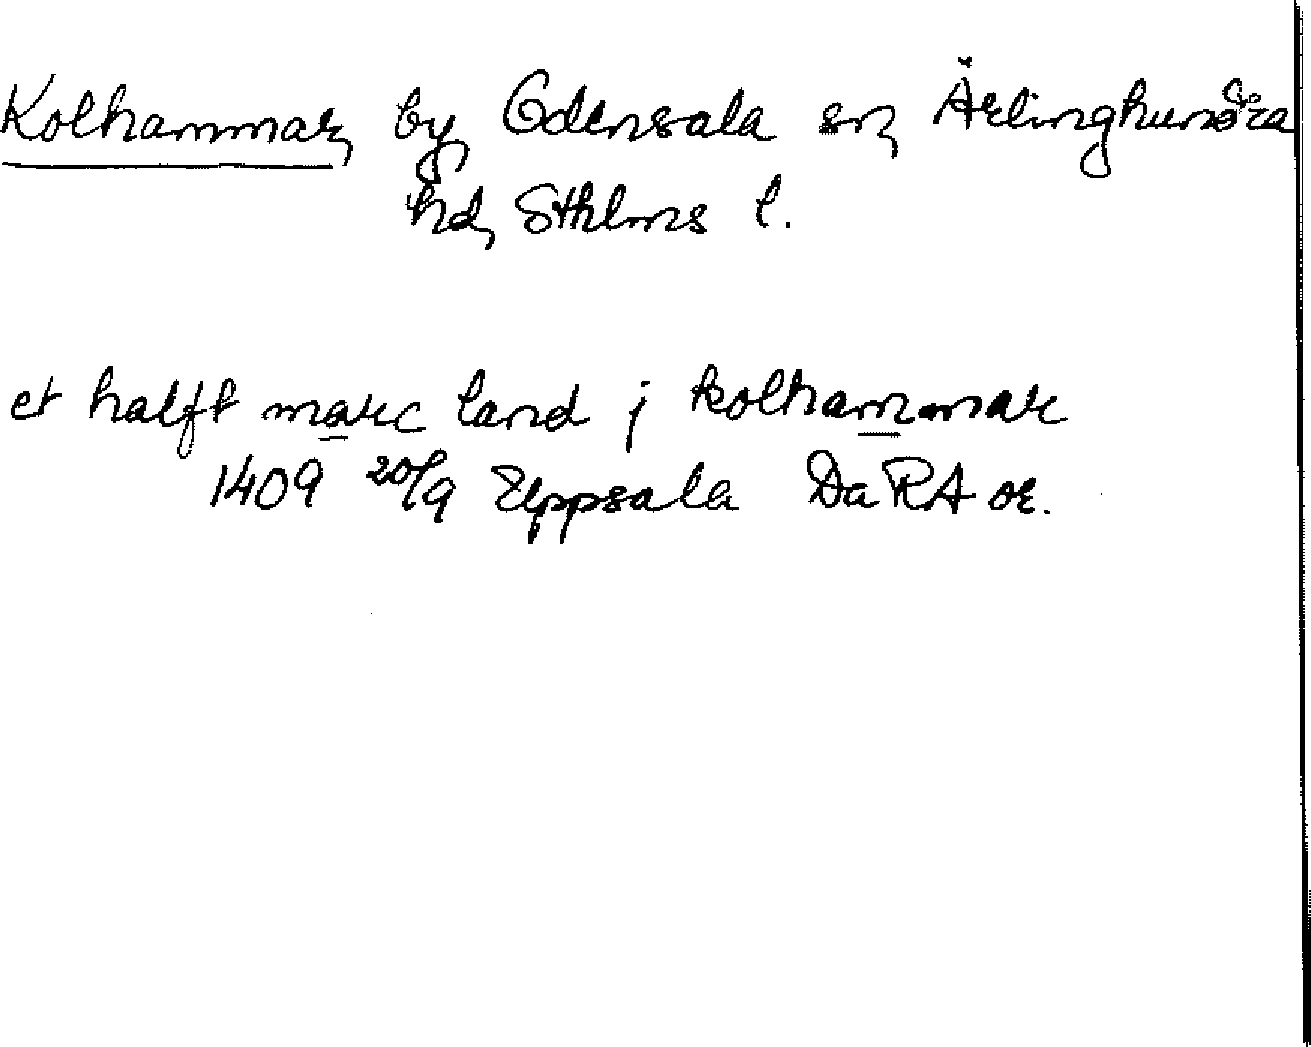 Kolhammar, by, Odensala sn, Ärlinghundra
hd, Sthlms l.
et halft marc land j kolhammar
1409 20/9 Uppsala DaRA or.